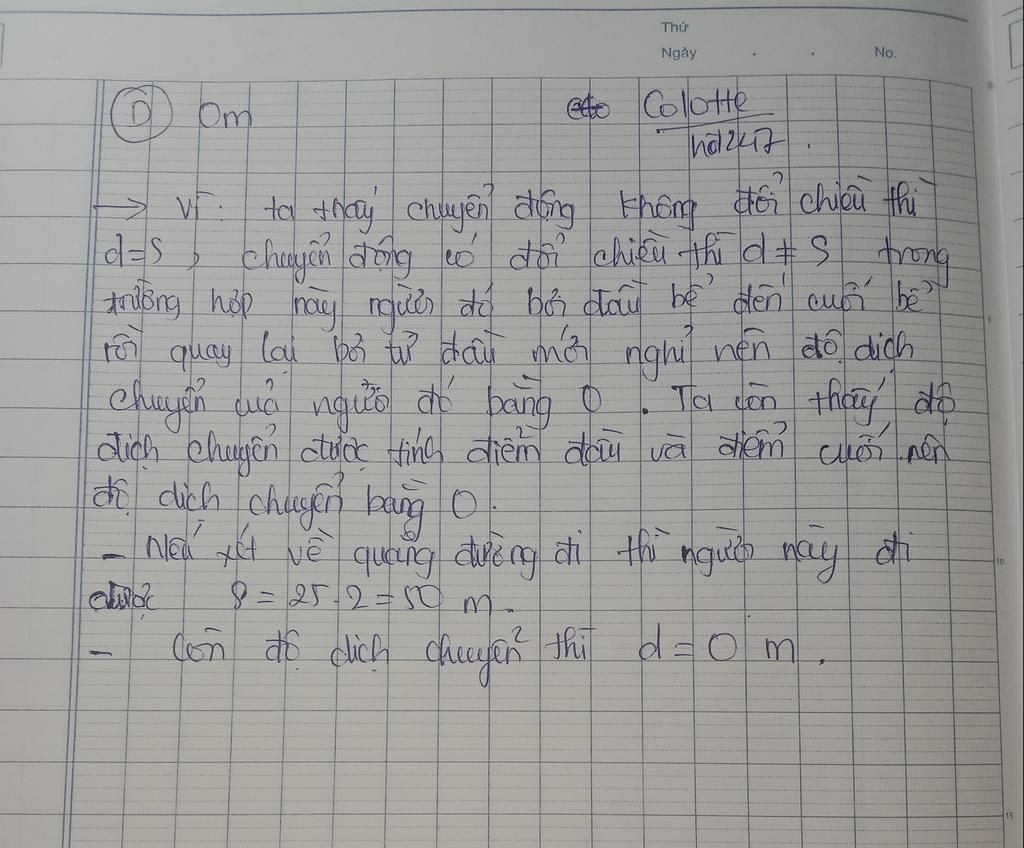 Thứ
Ngày . . No.
D 0m Colotte
hd247.
→ Vì: ta thấy chuyển động không đổi chiều thì
d=S, chuyển động có đổi chiều thì d≠S trong
trường hợp này người đó bơi đầu bể đến cuối bể
rồi quay lại bơi từ đầu mới nghỉ nên độ dịch
chuyển của người đó bằng 0. Ta còn thấy độ
dịch chuyển được tính điểm đầu và điểm cuối nên
độ dịch chuyển bằng 0.
- Nếu xét về quãng đường đi thì người này đi
được S = 25.2 = 50 m.
- Còn độ dịch chuyển thì d = 0 m.
5
10
15